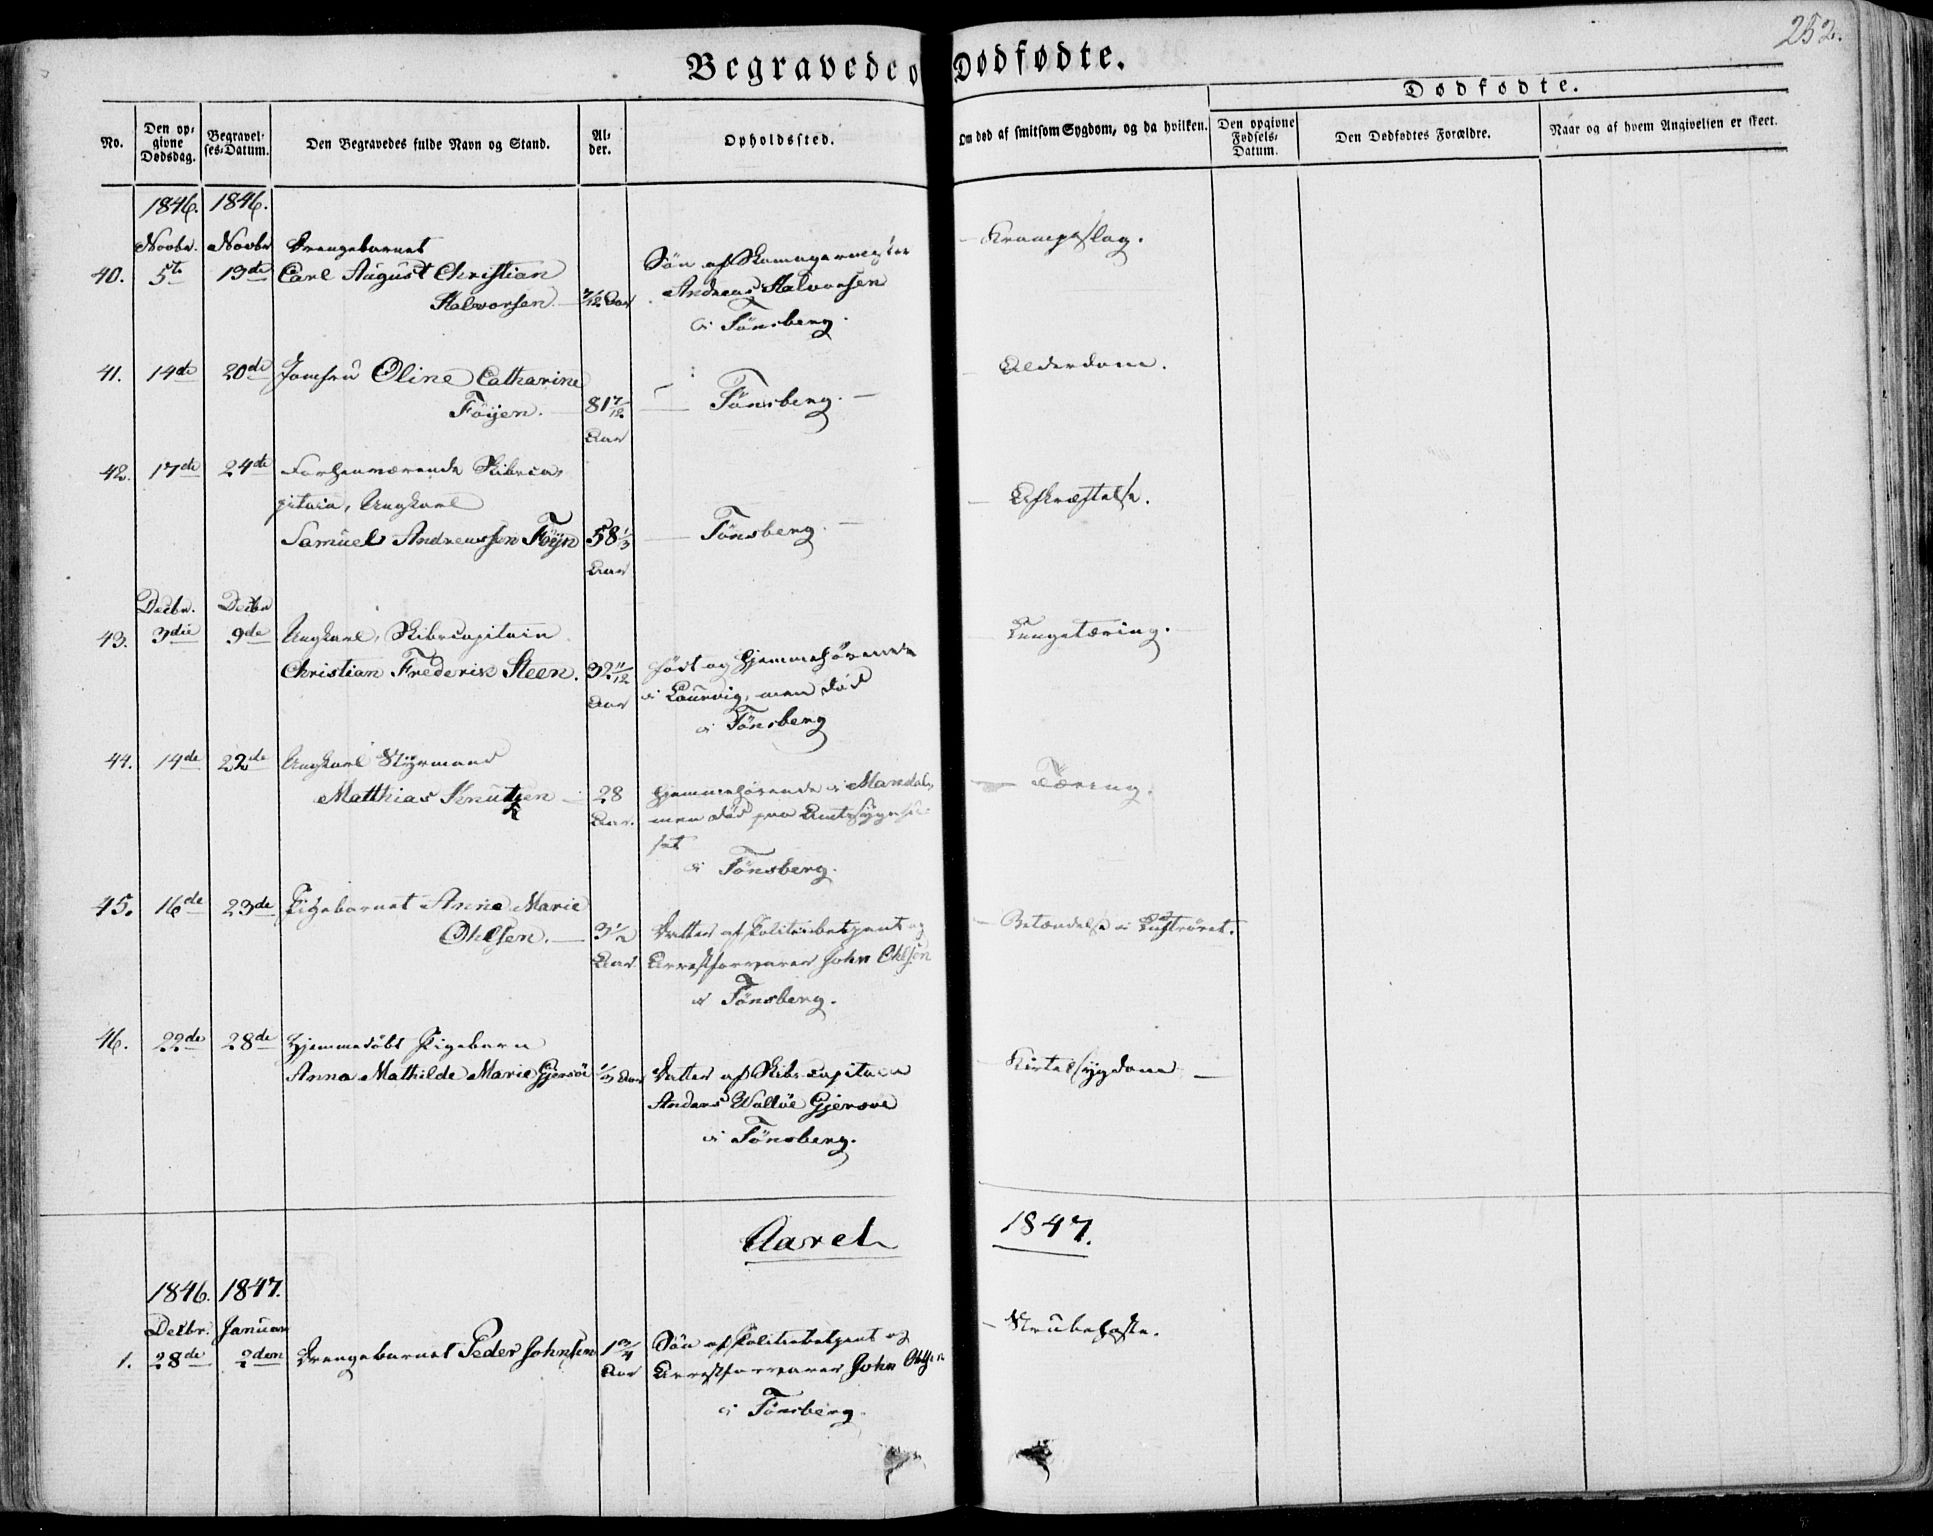 252.
Begravede o Dødfødte.
Dødfødte.
No.
Den op-
givne
Dødsdag.
Begravel-
ses-Datum.
Den Begravedes fulde Navn og Stand.
Al-
der.
Opholdssted.
Om død af smitsom Sygdom, og da hvilken.
Den opgivne
Fødsels-
Datum.
Den Dødfødtes Forældre.
Naar og af hvem Angivelsen er skeet.
1846. 1846.
Novbr. Novbr Drengebarnet
40. 5te 13de Carl August Christian
Halvorsen. — 7/12 Aar
Søn af Skomagermester
Andreas Halvorsen
i Tönsberg.
— Krampeslag.
41. 14de 20de Jomfru Oline Catharine
Föyen. — 81 7/12
Aar
— Tönsberg. —
— Alderdom.
42. 17de 24de Forhenværende Skibsca-
pitain, Ungkarl
Samuel Andreassen Föyn 58 1/3
Aar
— Tönsberg. —
— Afkræftelse.
Decbr. Decbr
43. 3die 9de Ungkarl, Skibscapitain
Christian Frederik Steen. 32 11/12
Aar
født og hjemmehörende
i Laurvig, men död
i Tönsberg
— Lungetæring. —
44. 14de 22de Ungkarl Styrmand
Matthias Knutzen — 28
Aar.
hjemmehörende i Mandal,
men död paa Amtssygehu-
set
i Tönsberg.
— Tæring.
45. 16de 23de Pigebarnet Anne Marie
Ohlsen. — 3 1/2
Aar
Datter af Politiebetjent og
Arrestforvarer John Ohlsen
i Tönsberg.
— Betændelse i Luftröret.
46. 22de 28de Hjemmedöbt Pigebarn
Anna Mathilde Marie Gjersöe 1/3 Aar
Datter af Skibscapitain
Anders Walløe Gjersøe
i Tönsberg.
— Kirtelsygdom —
Aaret 1847.
1846. 1847.
Decbr. Januar
1. 28de 2den Drengebarnet Peder Johnsen 1 3/4
Aar
Søn af Politiebetjent og
Arrestforvarer John Ohlsen
i Tönsberg.
— Strubehoste.